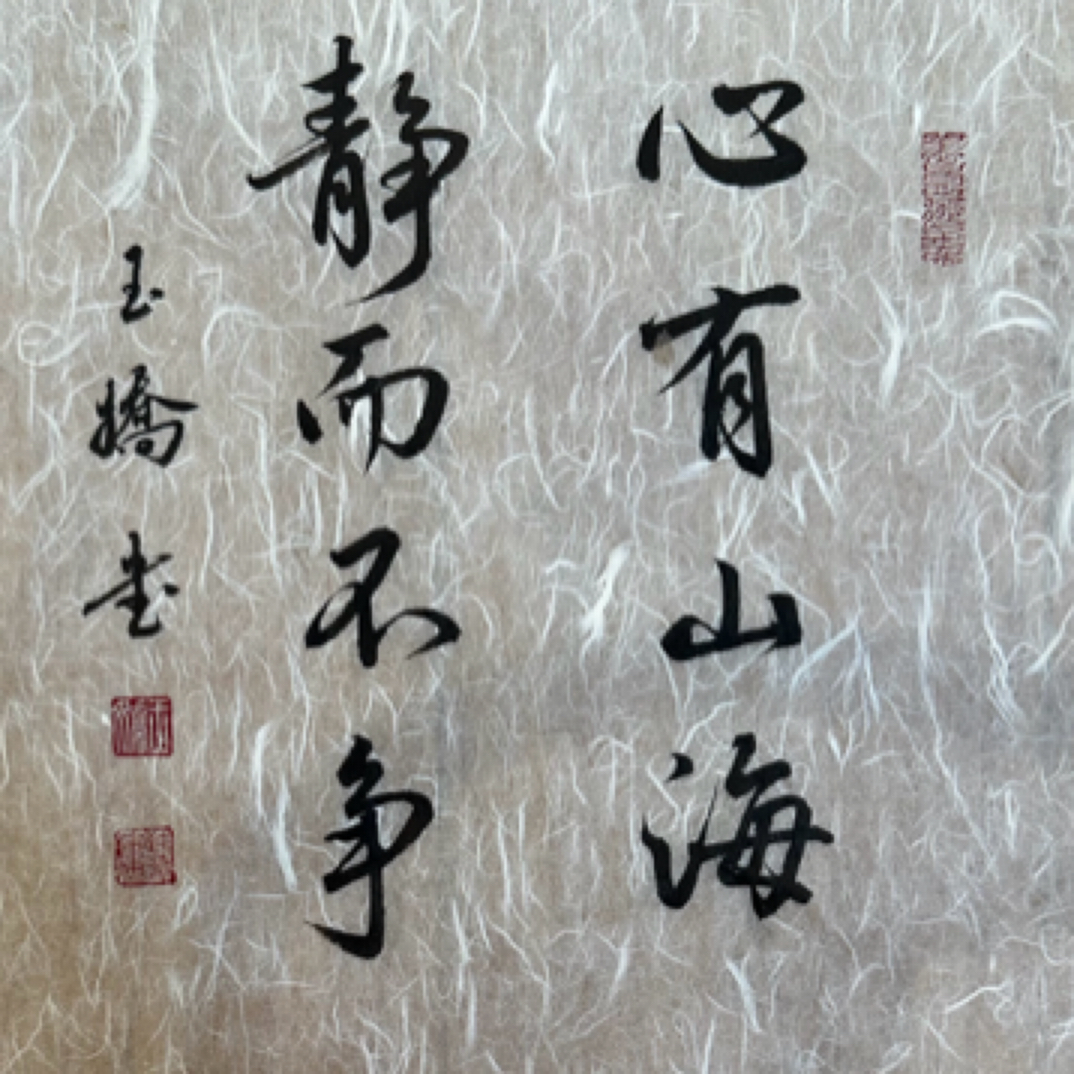 心有山海
静而不争
玉娇书